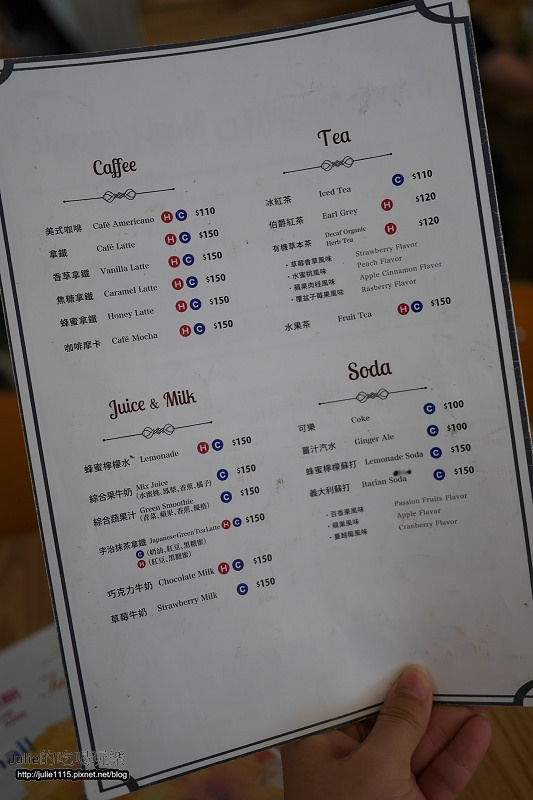 Caffee
美式咖啡 Café Americano H C $110
拿鐵 Café Latte H C $150
香草拿鐵 Vanilla Latte H C $150
焦糖拿鐵 Caramel Latte H C $150
蜂蜜拿鐵 Honey Latte H C $150
咖啡摩卡 Café Mocha H C $150
Tea
冰紅茶 Iced Tea C $110
伯爵紅茶 Earl Grey H $120
有機草本茶 Decaf Organic Herb Tea H $120
・草莓香草風味 Strawberry Flavor
・水蜜桃風味 Peach Flavor
・蘋果肉桂風味 Apple Cinnamon Flavor
・覆盆子莓果風味 Rasberry Flavor
水果茶 Fruit Tea H C $150
Juice & Milk
蜂蜜檸檬水 Lemonade H C $150
綜合果牛奶 Mix Juice C $150
(水蜜桃、鳳梨、香蕉、橘子)
綜合蔬果汁 Green Smoothie C $150
(青菜、蘋果、香蕉、優格)
宇治抹茶拿鐵 Japanese Green Tea Latte H C $150
C (奶油、紅豆、黑糖蜜)
H (紅豆、黑糖蜜)
巧克力牛奶 Chocolate Milk H C $150
草莓牛奶 Strawberry Milk C $150
Soda
可樂 Coke C $100
薑汁汽水 Ginger Ale C $100
蜂蜜檸檬蘇打 Lemonade Soda C $150
義大利蘇打 Itarian Soda C $150
・百香果風味 Passion Fruits Flavor
・蘋果風味 Apple Flavor
・蔓越莓風味 Cranberry Flavor
Julie的吃喝玩樂
http://julie1115.pixnet.net/blog